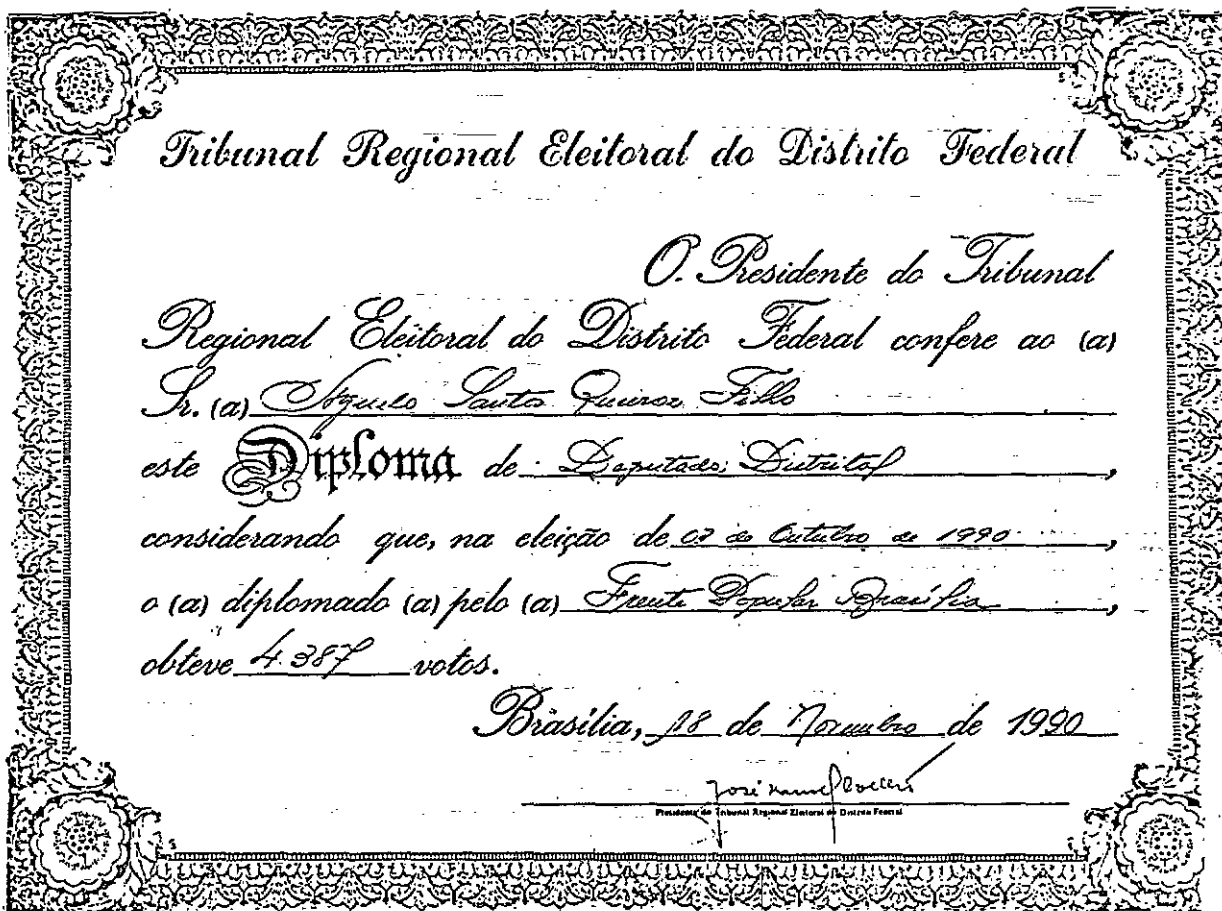 Tribunal Regional Eleitoral do Distrito Federal
O Presidente do Tribunal
Regional Eleitoral do Distrito Federal confere ao (a)
Sr. (a) Agnelo Santos Queiroz Filho
este Diploma de Deputado Distrital,
considerando que, na eleição de 03 de Outubro de 1990,
o (a) diplomado (a) pelo (a) Frente Popular Brasília,
obteve 4.387 votos.
Brasília, 28 de Novembro de 1990
José
Presidente do Tribunal Regional Eleitoral do Distrito Federal